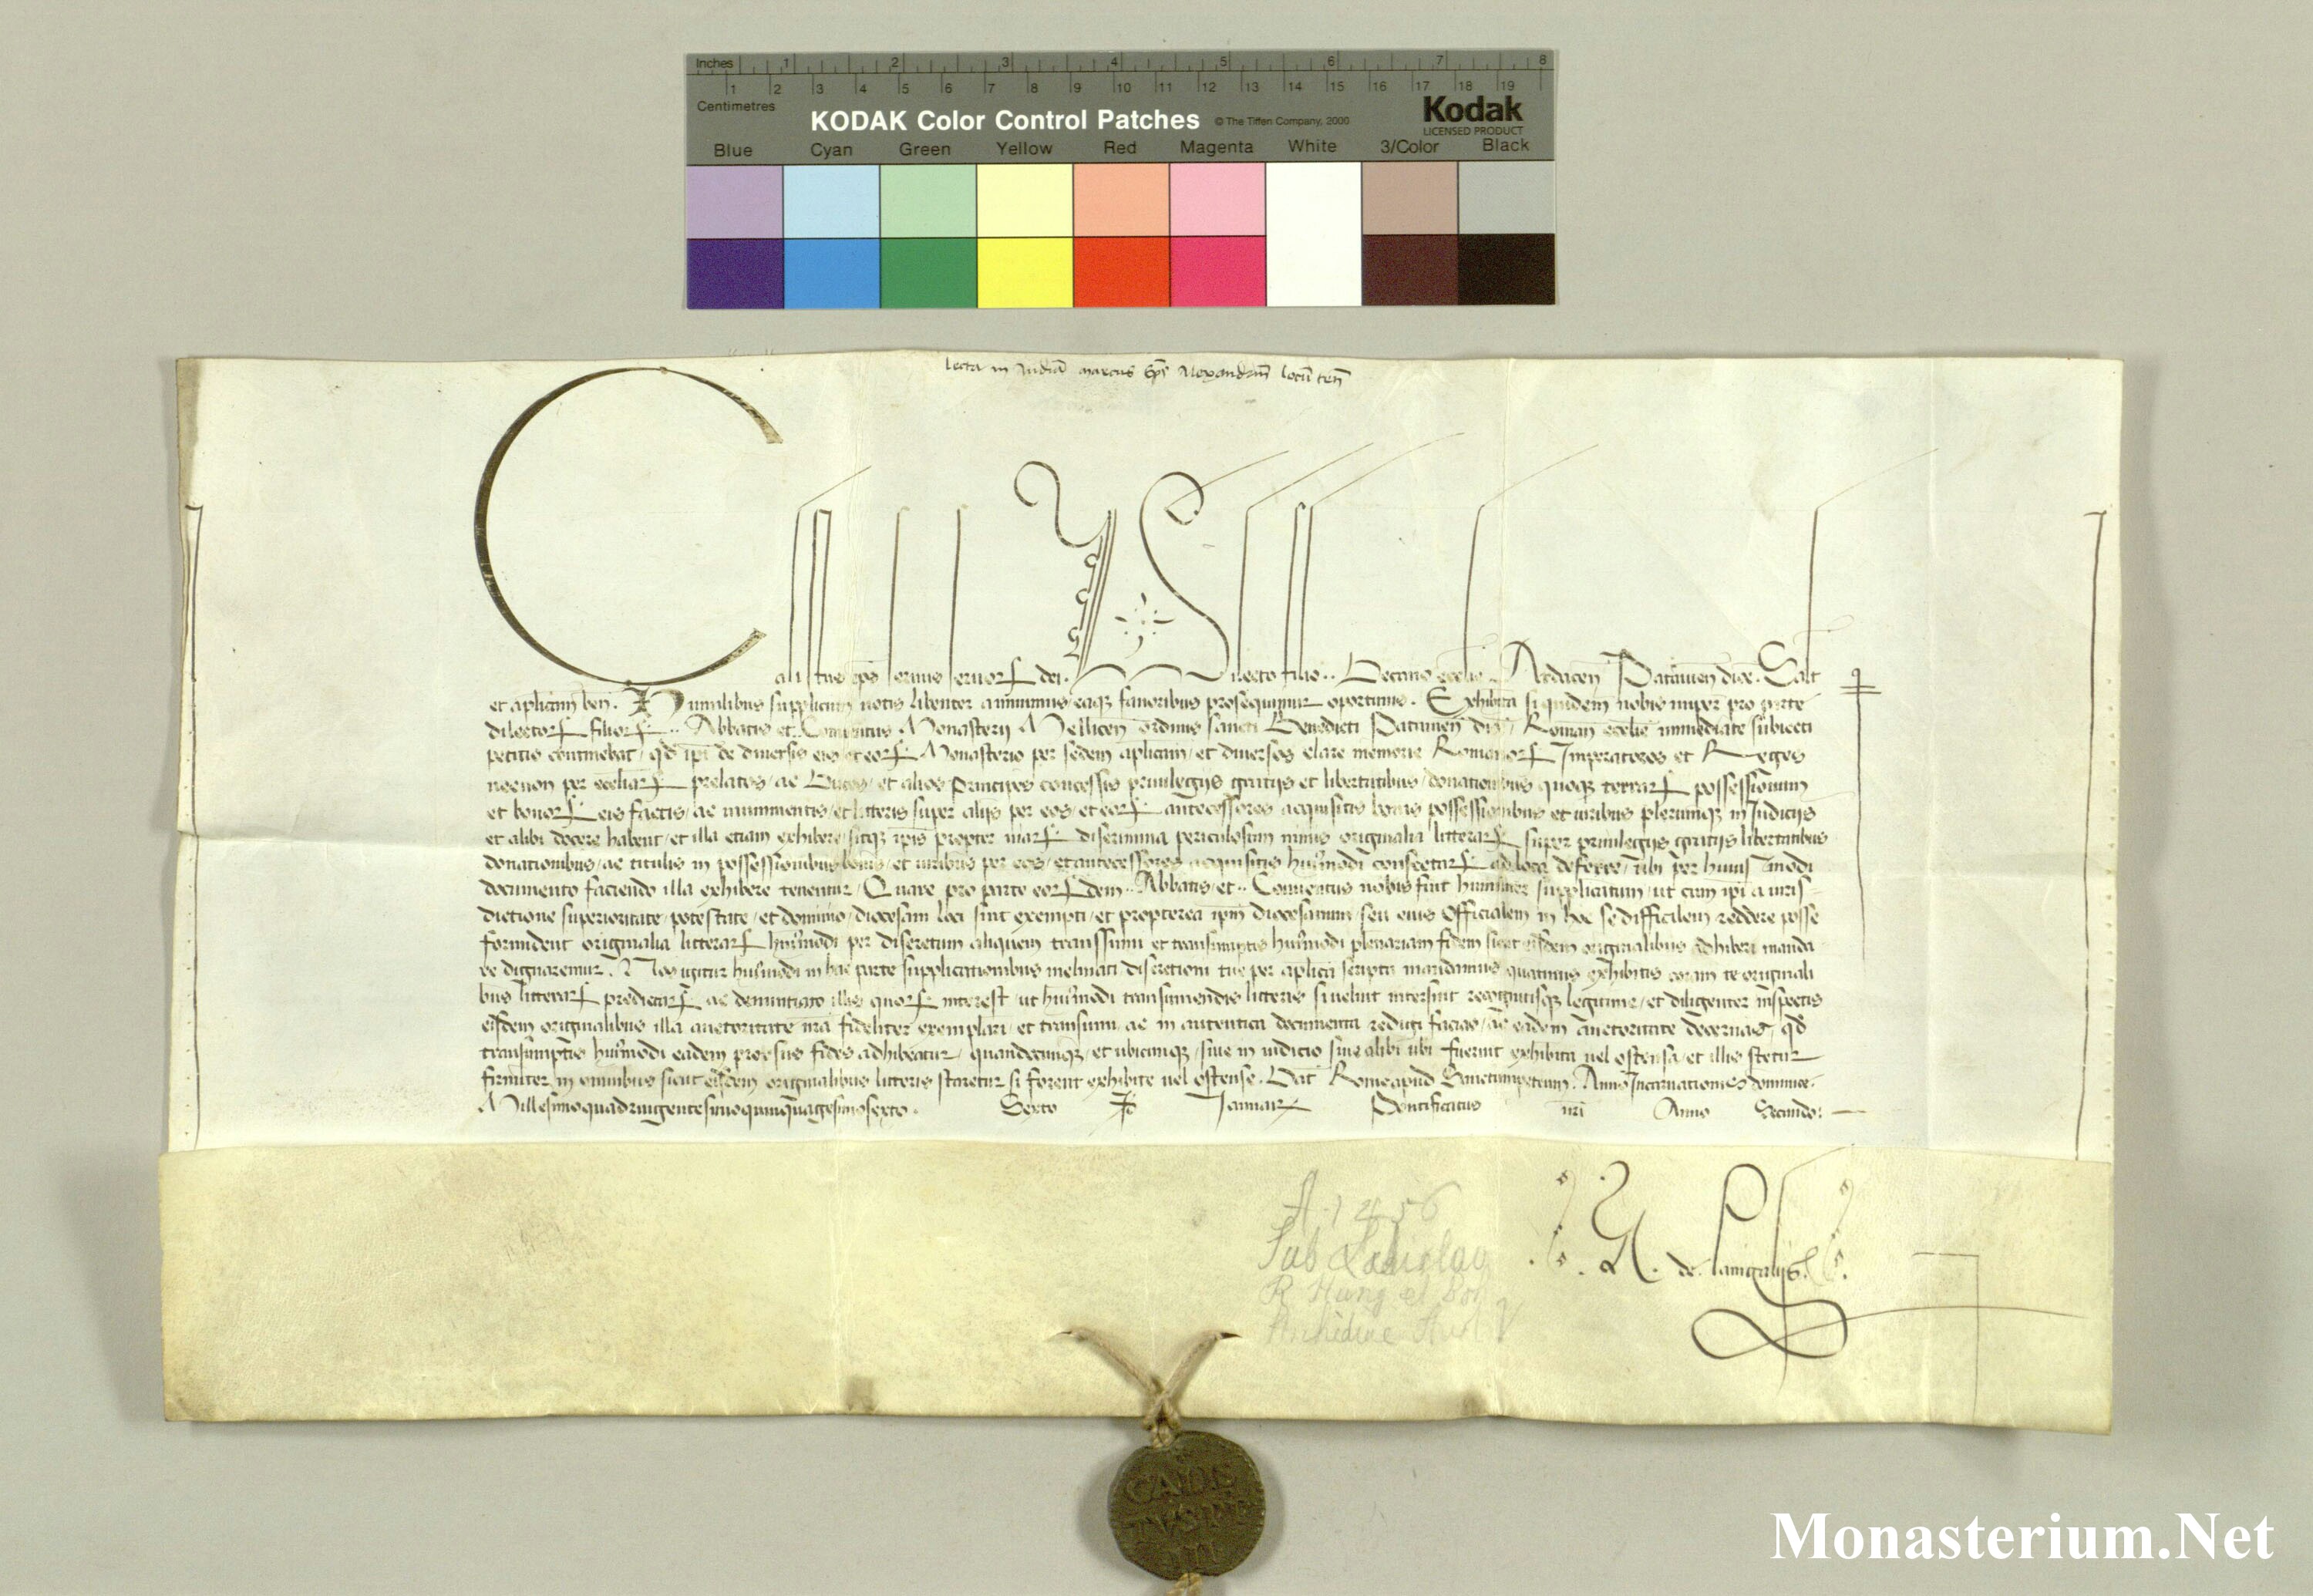 Inches 1 2 3 4 5 6 7 8
1 2 3 4 5 6 7 8 9 10 11 12 13 14 15 16 17 18 19
Centimetres
KODAK Color Control Patches © The Tiffen Company, 2000 Kodak
LICENSED PRODUCT
Blue Cyan Green Yellow Red Magenta White 3/Color Black
lecta in Audiā marcus Ep̄s Alexandrīn locū ten̄
Calistus ep̄s seruus seruorꝝ dei. Dilecto filio .. Decano ecclīe Ardacen̄ Patauien̄ dioc̄. Salt̄
et aplicam̄ ben̄. Humilibus supplicum uotis libenter annuimus eaqꝫ fauoribus prosequimur oportunis. Exhibita siquidem nobis nuper pro parte
dilectorꝝ filiorꝝ .. Abbatis et .. Conuentus Monasterij Mellicen̄ ordinis sancti Benedicti Patauien̄ dioc̄ Roman̄ ecclīe immediate subiecti
petitio continebat, qd̄ ip̄i de diuersis eis et eorꝝ Monasterio per sedem aplicam̄, et diuersos clare memorie Romanorꝝ Imperatores et Reges
necnon per eccliarꝝ prelatos, ac Duces, et alios Principes concessis priuilegijs gratijs et libertatibus, donationibus quoqꝫ terrarꝝ possessionum
et bonorꝝ eis factis, ac munimentis, et litteris super alijs per eos, et eorꝝ antecessores acquisitis bonis possessionibus et iuribus plerumqꝫ in Iudicijs
et alibi docere habent, et illa etiam exhibere, sitqꝫ ip̄is propter uiarꝝ discrimina periculosum nimis originalia litterarꝝ super priuilegijs gratijs libertatibus
donationibus, ac titulis in possessionibus bonis, et iuribus per eos, et antecessores acquisitis hui᾿modi consectarꝝ ad loca deferre, ubi per huiusmodi
documento faciendo illa exhibere tenentur, Quare pro parte eorꝝdem .. Abbatis, et .. Conuentus nobis fuit humiliter supplicatum, ut cum ip̄i a iuris
dictione superioritate, potestate, et dominio, diocesani loci sint exempti, et propterea ip̄m diocesanum, seu eius Officialem in hoc se difficilem reddere posse
formident originalia litterarꝝ hui᾿modi per discretum aliquem transsumi et transumptis hui᾿modi plenariam fidem sicut eisdem originalibus adhiberi manda
re dignaremur. Nos igitur hui᾿modi in hac parte supplicationibus inclinati, discretioni tue per aplica scripta mandamus, quatinus exhibitis coram te originali
bus litterarꝝ predictarꝝ ac denuntiato illis quorꝝ interest, ut hui᾿modi transumendis litteris si uelint intersint recognitisqꝫ legitime, et diligenter inspectis
eisdem originalibus illa auctoritate nr̄a fideliter exemplari, et transumi, ac in autentica documenta redigi facias, ac eadem auctoritate decernas, qd̄
transumptis hui᾿modi eadem prorsus fides adhibeatur, quandocunqꝫ, et ubicunqꝫ, siue in iudicio siue alibi ubi fuerint exhibita uel ostensa, et illis stetur
firmiter in omnibus sicut eisdem originalibus litteris staretur si forent exhibite uel ostense. Dat̄ Rome apud Sanctumpetrum. Anno Incarnationis dominice.
Millesimoquadringentesimoquinquagesimosexto. Sexto Id̄ Ianuarꝝ Pontificatus nr̄i Anno Secundo:
A. 1456
Sub Ladislao
R Hung et Boh
Archiduc Aust V
de
CALIS
TVS PAPA
III
Monasterium.Net